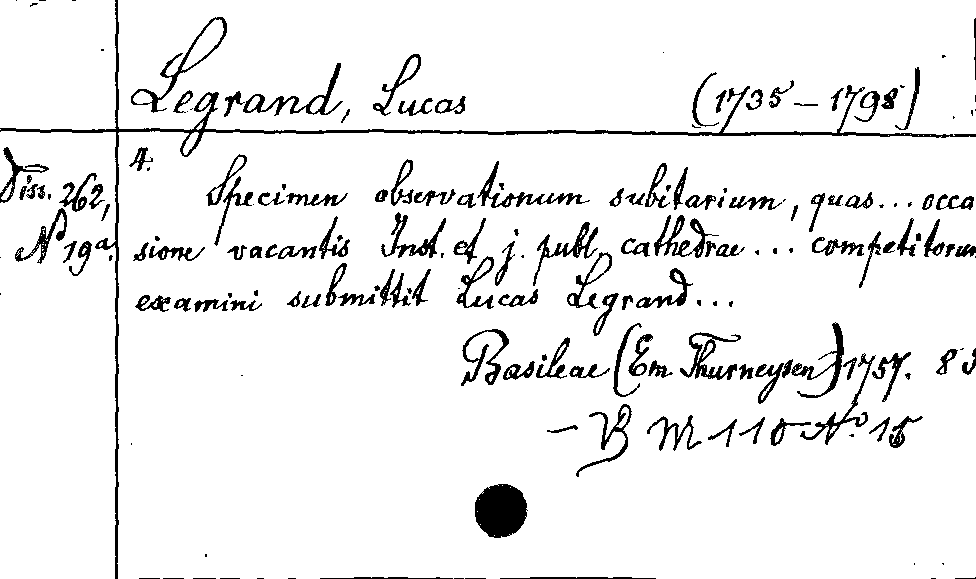 Legrand, Lucas (1735–1798)
4.
Diss. 262, Specimen observationum subitarium, quas... occa
No 19a. sione vacantis Inst. et j. publ. cathedrae... competitorum
examini submittit Lucas Legrand...
Basileae (Em Thurneysen) 1757. 8
– B M 110 No. 15